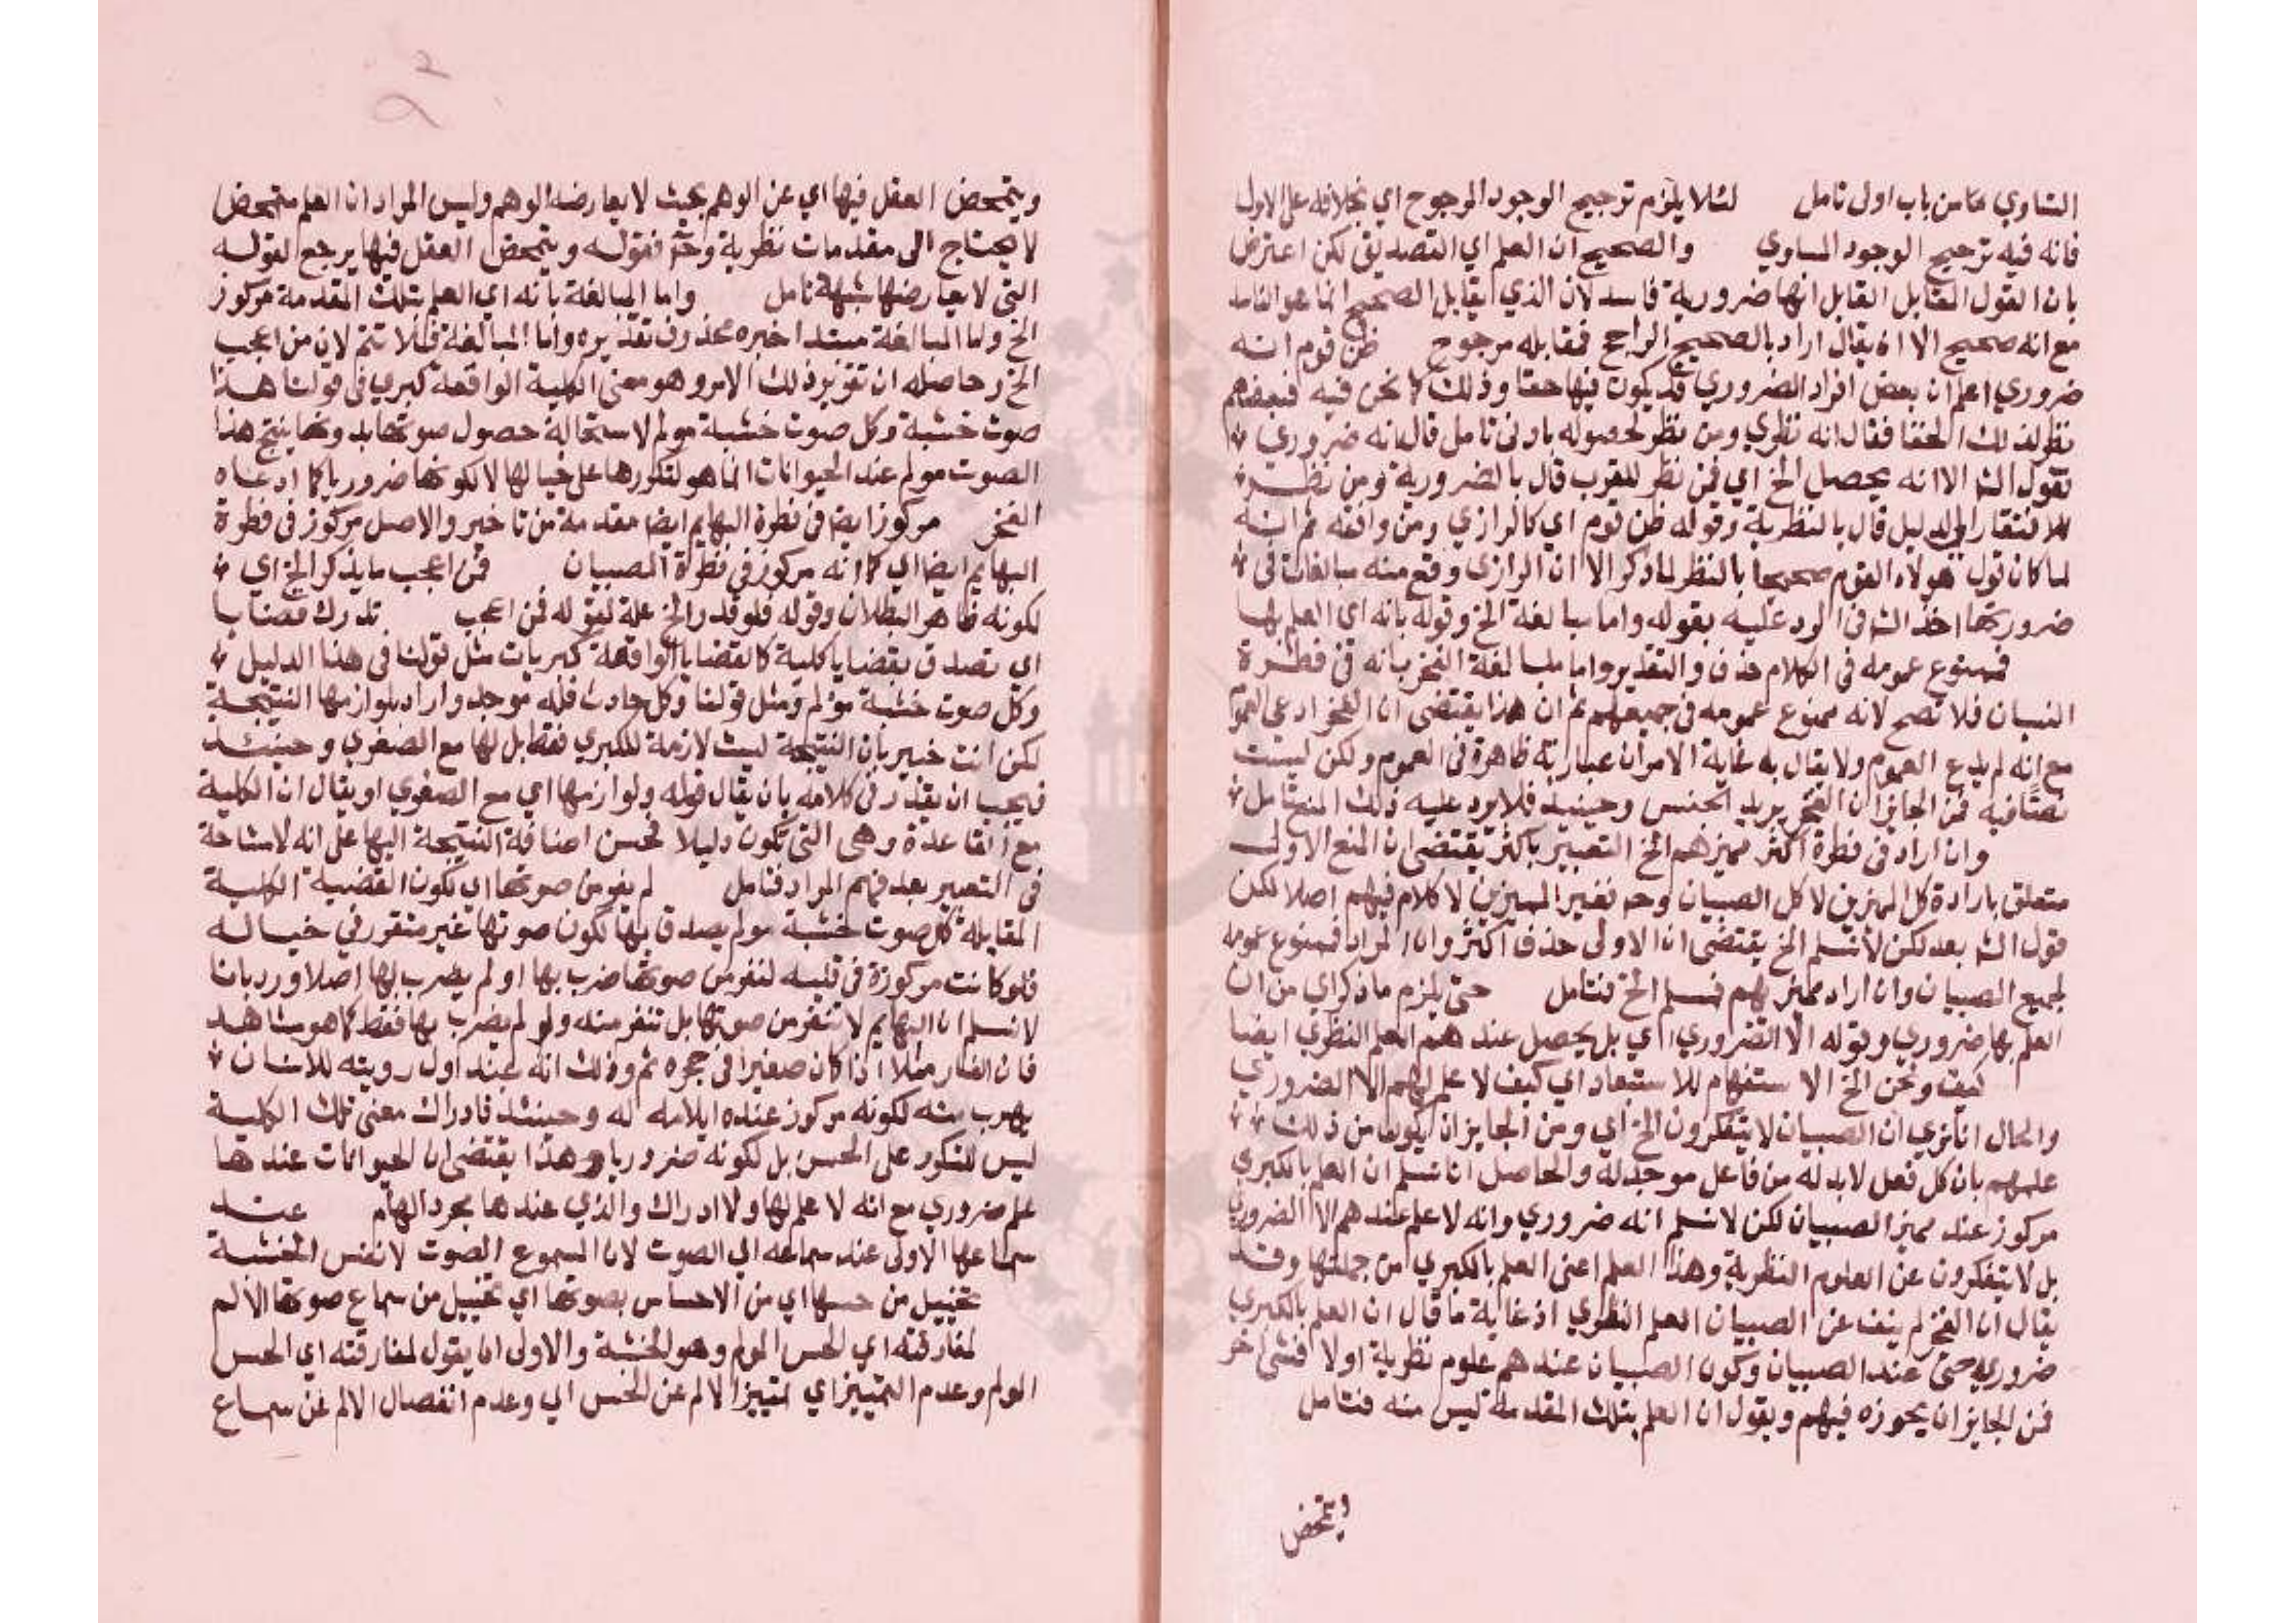 التساوي كما من باب اولى تامل لئلا يلزم ترجيح الوجود المرجوح اي بخلافه على الاول
فانه فيه ترجيح الوجود المساوي والصحيح ان العلم اي التصديق لكن اعترض
بان القول المقابل القابل انها ضرورية فاسد لان الذي يقابل الصحيح انما هو الفاسد
مع انه صحيح الا ان يقال اراد بالصحيح الراجح فمقابله مرجوح ظن قوم انه
ضروري اعلم ان بعض افراد الضروري قد يكون فيها خفا وذلك كما نحن فيه فبعضهم
نظر لذلك الخفا فقال انه نظري ومن نظر لحصوله بادنى تامل قال انه ضروري
نقول الش الا انه يحصل الخ اي فمن نظر للقرب قال بالضرورية ومن نظر
للافتقار الى الدليل قال بالنظرية وقوله ظن قوم اي كالرازي ومن وافقه ثم انه
لما كان قول هولاء القوم صحيحا بالنظر لما ذكر الا ان الرازي وقع منه مبالغات في
ضروريتها اخذ الش في الرد عليه بقوله واما مبالغة الخ وقوله بانه اي العلم بها
فممنوع عمومه في الكلام حذف والتقدير واما مبالغة الفخر بانه في فطرة
الصبيان فلا تصح لانه ممنوع عمومه في جميعهم ثم ان هذا يقتضي ان الفخر ادعى العموم
مع انه لم يدع العموم ولا يقال به غاية الامر ان عبارته ظاهرة في العموم ولكن ليست
نصا فيه فمن الجايز ان الفخر يريد الجنس وحينيذ فلا يرد عليه ذلك المنع تامل
وان اراد في فطرة اكثر مميزهم الخ التعبير باكثر يقتضي ان المنع الاول
متعلق بارادة كل المميزين لا كل الصبيان وح فغير المميزين لا كلام فيهم اصلا لكن
قول الش بعد لكن لا نسلم الخ يقتضي ان الاولى حذف اكثر وان المراد فممنوع عمومه
لجميع الصبيان وان اراد مميزهم فمسلم الخ فتامل حتى يلزم ما ذكر اي من ان
العلم بها ضروري وقوله الا الضروري اي بل يحصل عندهم العلم النظري ايضا
كيف ونحن الخ الاستفهام للاستبعاد اي كيف لا علم لهم الا الضروري
والحال انا نري ان الصبيان لا يتفكرون الخ اي ومن الجايز ان يكون من ذلك
علمهم بان كل فعل لا بد له من فاعل موجد له والحاصل انا نسلم ان العلم بالكبري
مركوز عند مميز الصبيان لكن لا نسلم انه ضروري وانه لا علم عندهم الا الضروري
بل لا يتفكرون عن العلوم النظرية وهذا العلم اعني العلم بالكبري من جملتها وقد
يقال ان الفخر لم ينف عن الصبيان العلم النظري اذ غاية ما قال ان العلم بالكبري
ضروري حتى عند الصبيان وكون الصبيان عندهم علوم نظرية اولا فشى اخر
فمن الجايز ان يجوزه فيهم ويقول ان العلم بتلك المقدمة ليس منه فتامل
ويتمحض
ويتمحض العقل فيها اي عن الوهم بحيث لا يعارضه الوهم وليس المراد ان العلم متمحض
لا يحتاج الى مقدمات نظرية وح فقوله ويتمحض العقل فيها يرجع لقوله
التي لا يعارضها شبهة تامل واما المبالغة بانه اي العلم بتلك المقدمة مركوز
الخ واما المبالغة مبتدا خبره محذوف تقديره واما المبالغة فلا تتم لان من اعجب
الخ وحاصله ان تقرير ذلك الامر وهو معنى الكلية الواقعة كبري في قولنا هذا
صوت خشبة وكل صوت خشبة مولم لاستحالة حصول صوتها بدونها ينتج هذا
الصوت مولم عند الحيوانات انما هو لتكررها على خيالها لا لكونها ضروريا كما ادعاه
الفخر مركوز ايضا في فطرة البهايم ايضا مقدمة من تاخير والاصل مركوز في فطرة
البهايم ايضا اي كما انه مركوز في فطرة الصبيان فمن اعجب ما يذكر الخ اي
لكونه ظاهر البطلان وقوله فلو قدر الخ علة لقوله فمن اعجب تدرك قضايا
اي تصدق بقضايا كلية كالقضايا الواقعة كبريات مثل قولنا في هذا الدليل
وكل صوت خشبة مؤلم ومثل قولنا وكل حادث فله موجد واراد بلوازمها النتيجة
لكن انت خبير بان النتيجة ليست لازمة للكبري فقط بل لها مع الصغري وحينئذ
فيجب ان يقدر في كلامه بان يقال قوله ولوازمها اي مع الصغري او يقال ان الكلية
مع القاعدة وهى التي تكون دليلا لحسن اضافة النتيجة اليها على انه لا مشاحة
في التعبير بعد فهم المراد فتامل لم ينفر من صوتها اي لكون القضية الكلية
المقابلة كل صوت خشبة مولم يصدق بها لكون صوتها غير متقرر في خياله
فلو كانت مركوزة في قلبه لنفر من صوتها ضرب بها او لم يضرب بها اصلا ورد بانا
لا نسلم ان البهايم لا تنفر من صوتها بل تنفر منه ولو لم يضرب بها فقط كما هو مشاهد
فان الفار مثلا اذا كان صغيرا في جحره ثم وذلك انه عند اول رويته للانسان
يهرب منه لكونه مركوز عنده ايلامه له وحينئذ فادراك معنى تلك الكلية
ليس للتكرر على الحس بل لكونه ضروريا وهذا يقتضي ان الحيوانات عندها
علم ضروري مع انه لا علم لها ولا ادراك والذي عندها مجرد الهام عند
سماعها الاولى عند سماعه اي الصوت لان المسموع الصوت لا نفس الخشبة
تخييل من حسها اي من الاحساس بصوتها اي تخييل من سماع صوتها الالم
لمفارقته اي الحس المولم وهو الخشبة والاولى ان يقول لمفارقته اي الحس
المولم وعدم التمييز اي تمييز الالم عن الحس اي وعدم انفصال الالم عن سماع